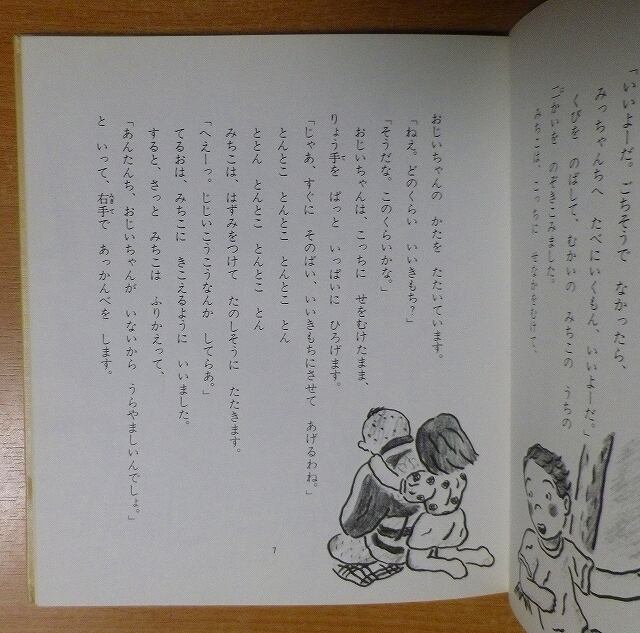 「いいよーだ。ごちそうで なかったら、
みっちゃんちへ たべにいくもん、いいよーだ。」
くびを のばして、むかいの みちこの うちの
ごかいを のぞきこみました。
みちこは、こっちに せなかをむけて、
おじいちゃんの かたを たたいています。
「ねえ。どのくらい いいきもち?」
「そうだな。このくらいかな。」
おじいちゃんは、こっちに せをむけたまま、
りょう手を ぱっと いっぱいに ひろげます。
「じゃあ、すぐに そのばい、いいきもちにさせて あげるわね。」
とんとこ とんとこ とんとこ とん
ととん とんとこ とんとこ とん
みちこは、はずみをつけて たのしそうに たたきます。
「へえーっ。じじいこうこうなんか してらあ。」
てるおは、みちこに きこえるように いいました。
すると、さっと みちこは ふりかえって、
「あんたんち、おじいちゃんが いないから うらやましいんでしょ。」
と いって、右手で あっかんべを します。
7